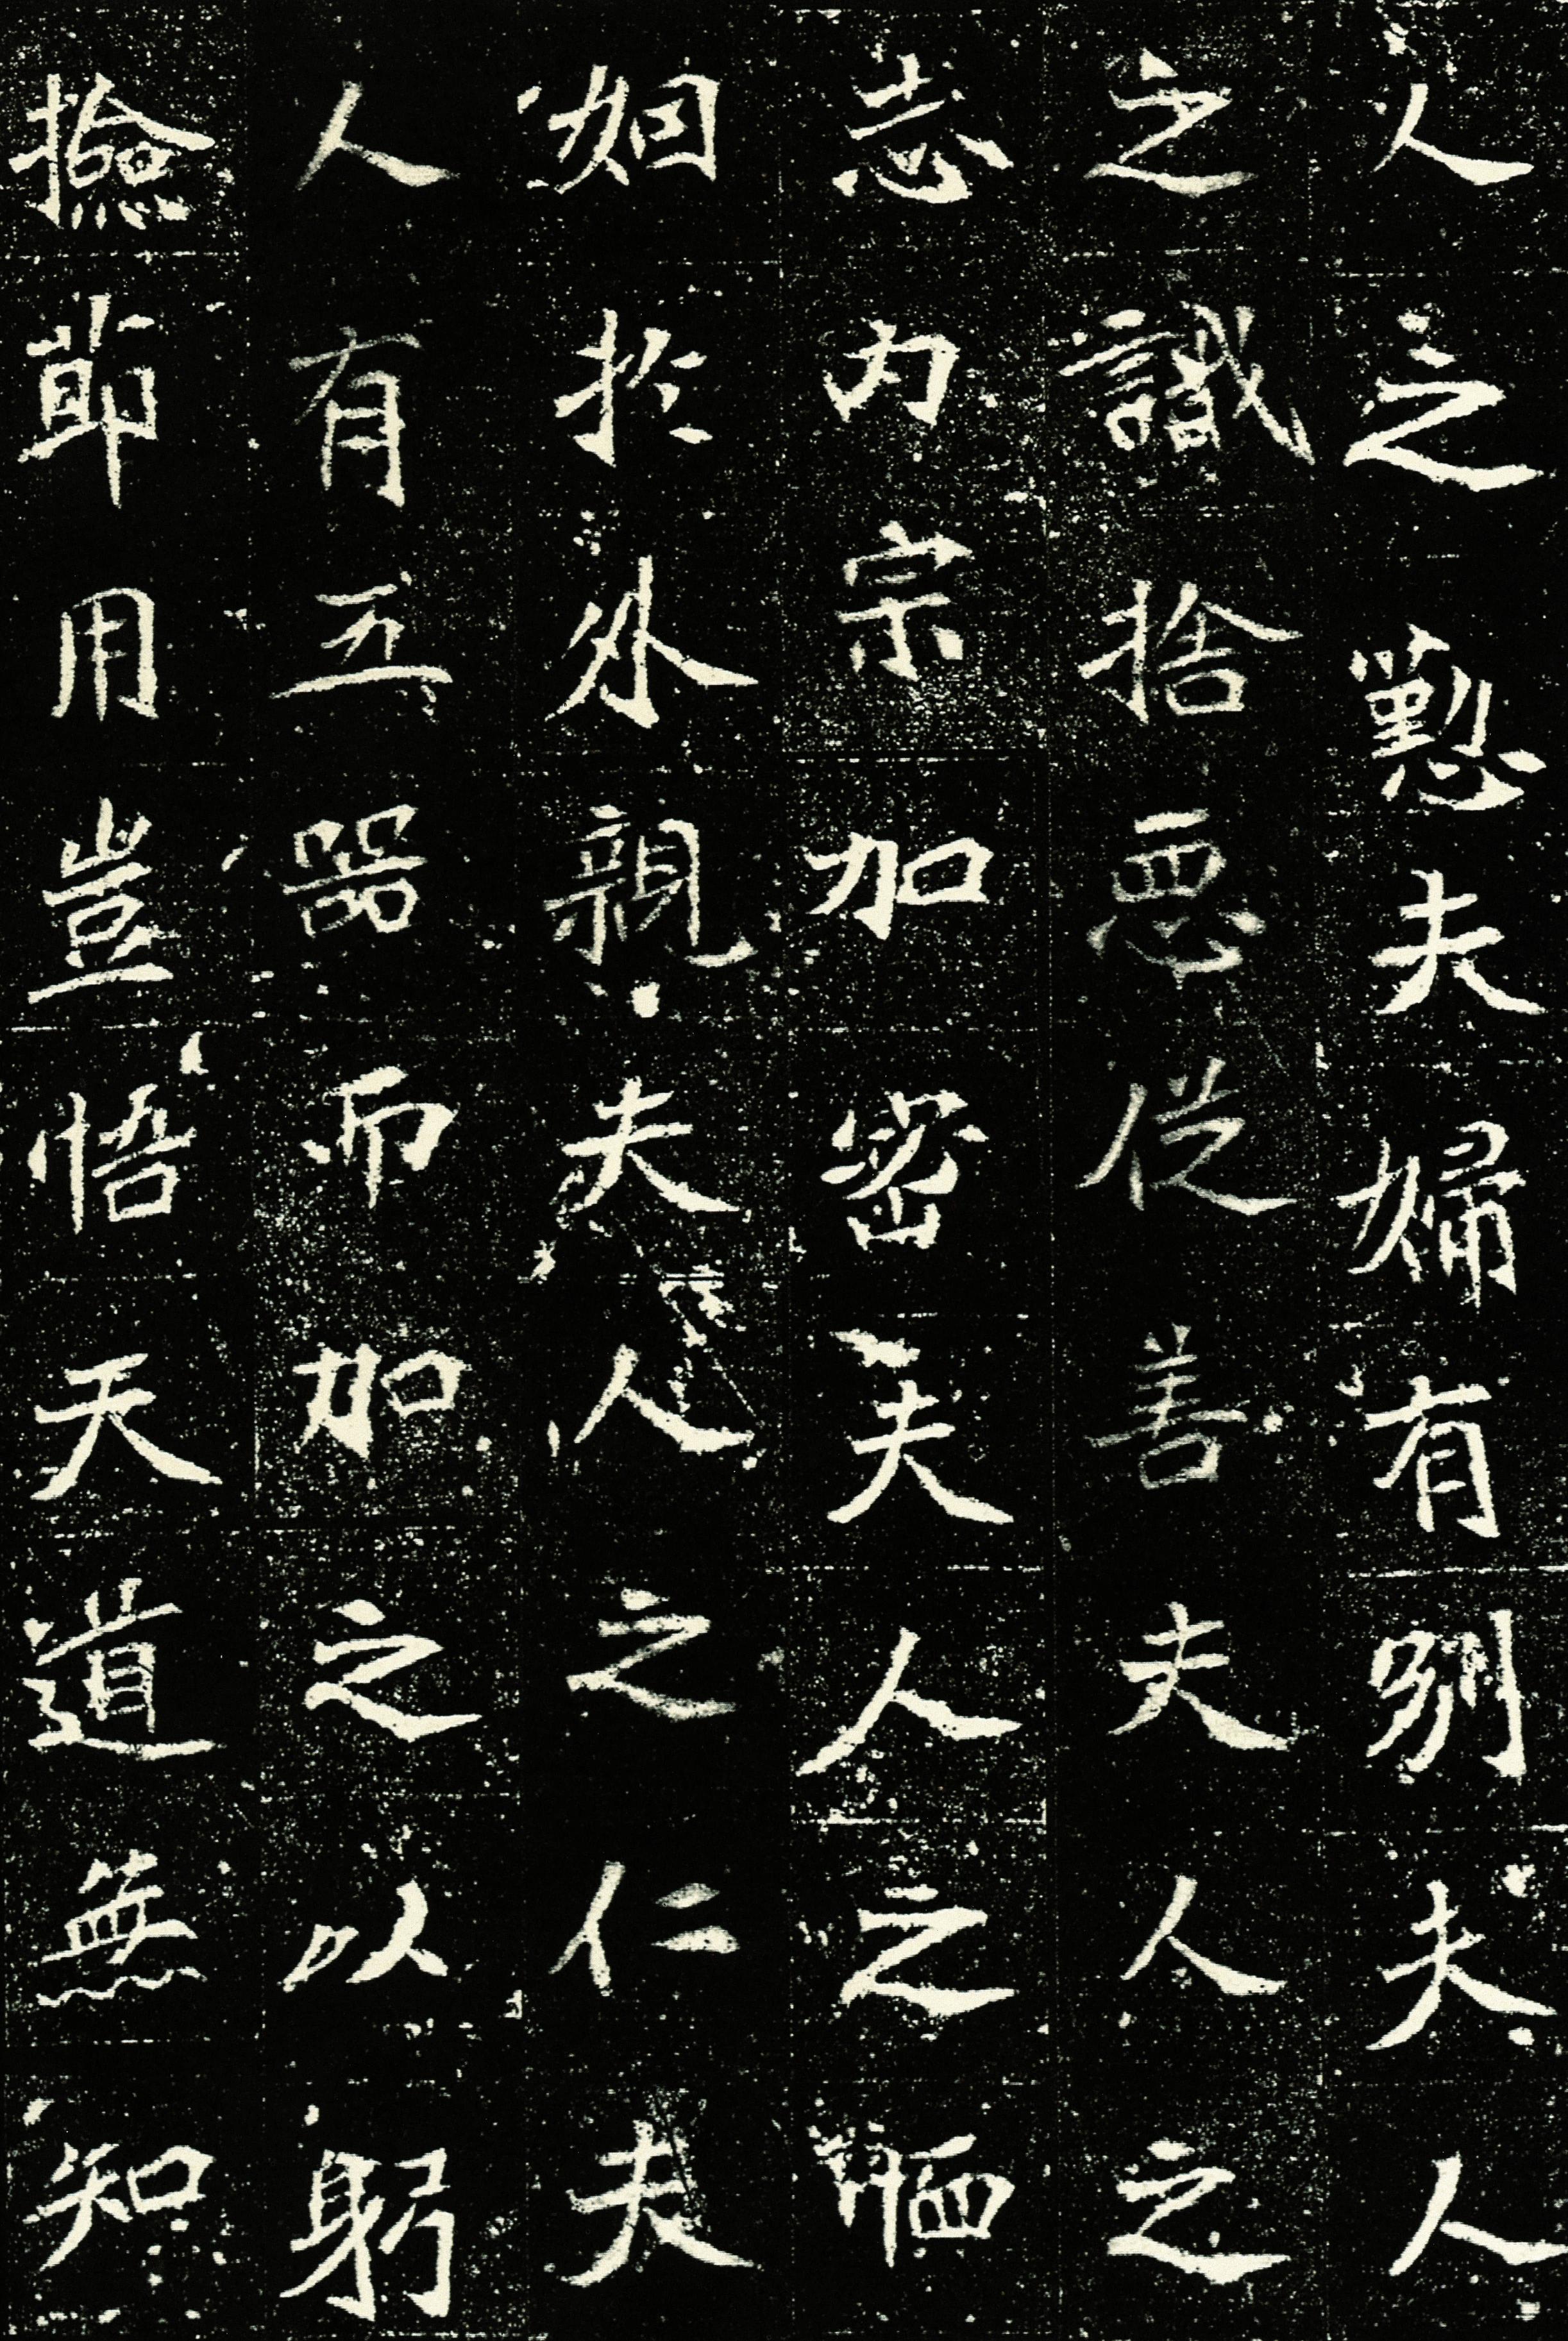 人之懃夫婦有別夫人
之識捨惡從善夫人之
志內宗加密夫人之恤
姻於外親夫人之仁夫
人有五器而加之以躬
撿節用豈悟天道無知